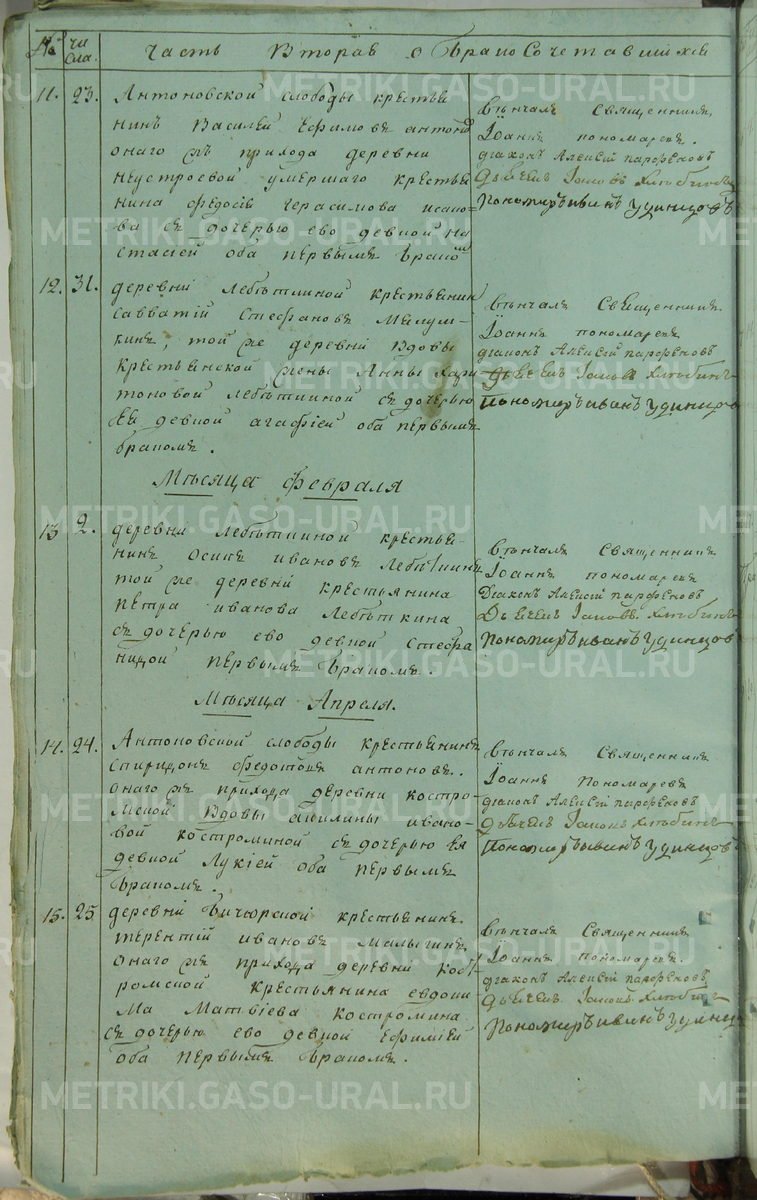 № чи сла. Часть Вторая о бракосочетавшихся
11. 23. Антоновской слободы крестья
нинъ Василей Ефимовъ антоно
онаго жъ прихода деревни
неустроевой умершаго крестья
нина федосѣя Герасимова
ва съ дочерью ево девкой на
стасіей оба первымъ бракомъ
Вѣнчалъ Священникъ
Іоаннъ пономаревъ.
діаконъ Алексѣй парфеновъ
Дьячекъ Іаковъ Хлыбинъ
Пономарь иванъ Удинцовъ
12. 31. деревни Лебѣткиной крестьянин
Савватій Стефановъ
кинъ, той же деревни вдовы
крестьянской жены Анны хари
тоновой лебѣткиной съ дочерью
ея девкой агафіей оба первымъ
бракомъ.
Вѣнчалъ Священникъ
Іоаннъ пономаревъ
діаконъ Алексѣй парфеновъ
Дьячекъ Іаковъ Хлыбинъ
Пономарь иванъ Удинцовъ
Мѣсяца февраля
13 2. деревни Лебѣткиной крестья-
нинъ Осипъ ивановъ Лебѣткинъ
той же деревни крестьянина
петра иванова Лебѣткина
съ дочерью ево девкой Стефа
нидой первымъ бракомъ.
Вѣнчалъ Священникъ
Іоаннъ пономаревъ
Діаконъ Алексѣй парфеновъ
Дьячекъ Іаковъ Хлыбинъ
Пономарь иванъ Удинцовъ
Мѣсяца Апреля.
14. 24. Антоновской слободы крестьянинъ
Спиридонъ федотовъ антоновъ.
онаго жъ прихода деревни костро-
мской вдовы акилины ивано-
вой костроминой съ дочерью ея
девкой Лукіей оба первымъ
бракомъ.
Вѣнчалъ Священникъ
Іоаннъ Пономаревъ
діаконъ Алексѣй парфеновъ
Дьячекъ Іаковъ Хлыбинъ
Пономарь иванъ Удинцовъ
15. 25. деревни Бичурской крестьянинъ
терентій ивановъ Малыгинъ
онаго жъ прихода деревни кост
ромской крестьянина евдоки
ма Матвіева костромина
съ дочерью ево девкой Ефиміей
оба первымъ бракомъ.
Вѣнчалъ Священникъ
Іоаннъ пономаревъ.
діаконъ Алексѣй парфеновъ
Дьячекъ Іаковъ Хлыбинъ
Пономарь иванъ Удинцовъ
METRIKI.GASO-URAL.RU